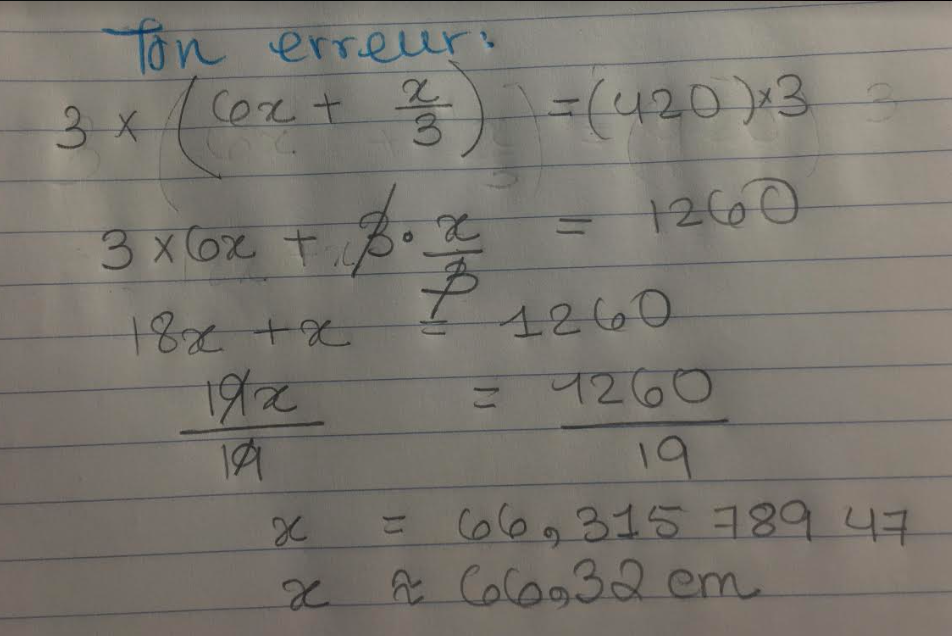 Ton erreur:
3 × (6x + x/3) = (420)×3
3 × 6x + 3 · x/3 = 1260
18x + x = 1260
19x/19 = 1260/19
x = 66,315 789 47
x ≈ 66,32 cm